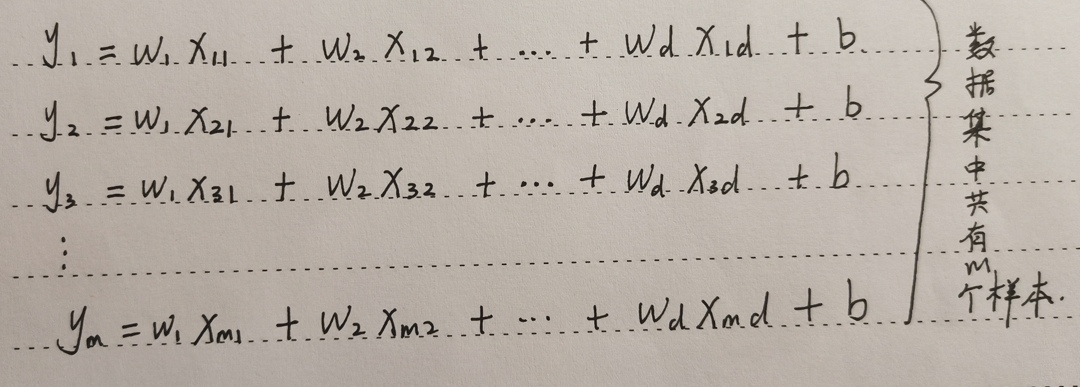 y₁ = w₁ x₁₁ + w₂ x₁₂ + ... + wd x₁d + b
y₂ = w₁ x₂₁ + w₂ x₂₂ + ... + wd x₂d + b
y₃ = w₁ x₃₁ + w₂ x₃₂ + ... + wd x₃d + b
⋮
yₘ = w₁ xₘ₁ + w₂ xₘ₂ + ... + wd xₘd + b
数据集中共有m个样本.